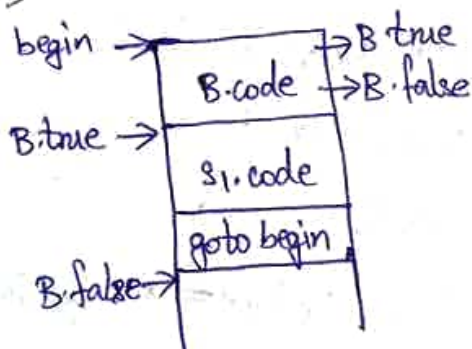 begin → → B true
B.code → B.false
B.true →
S1.code
goto begin
B.false →